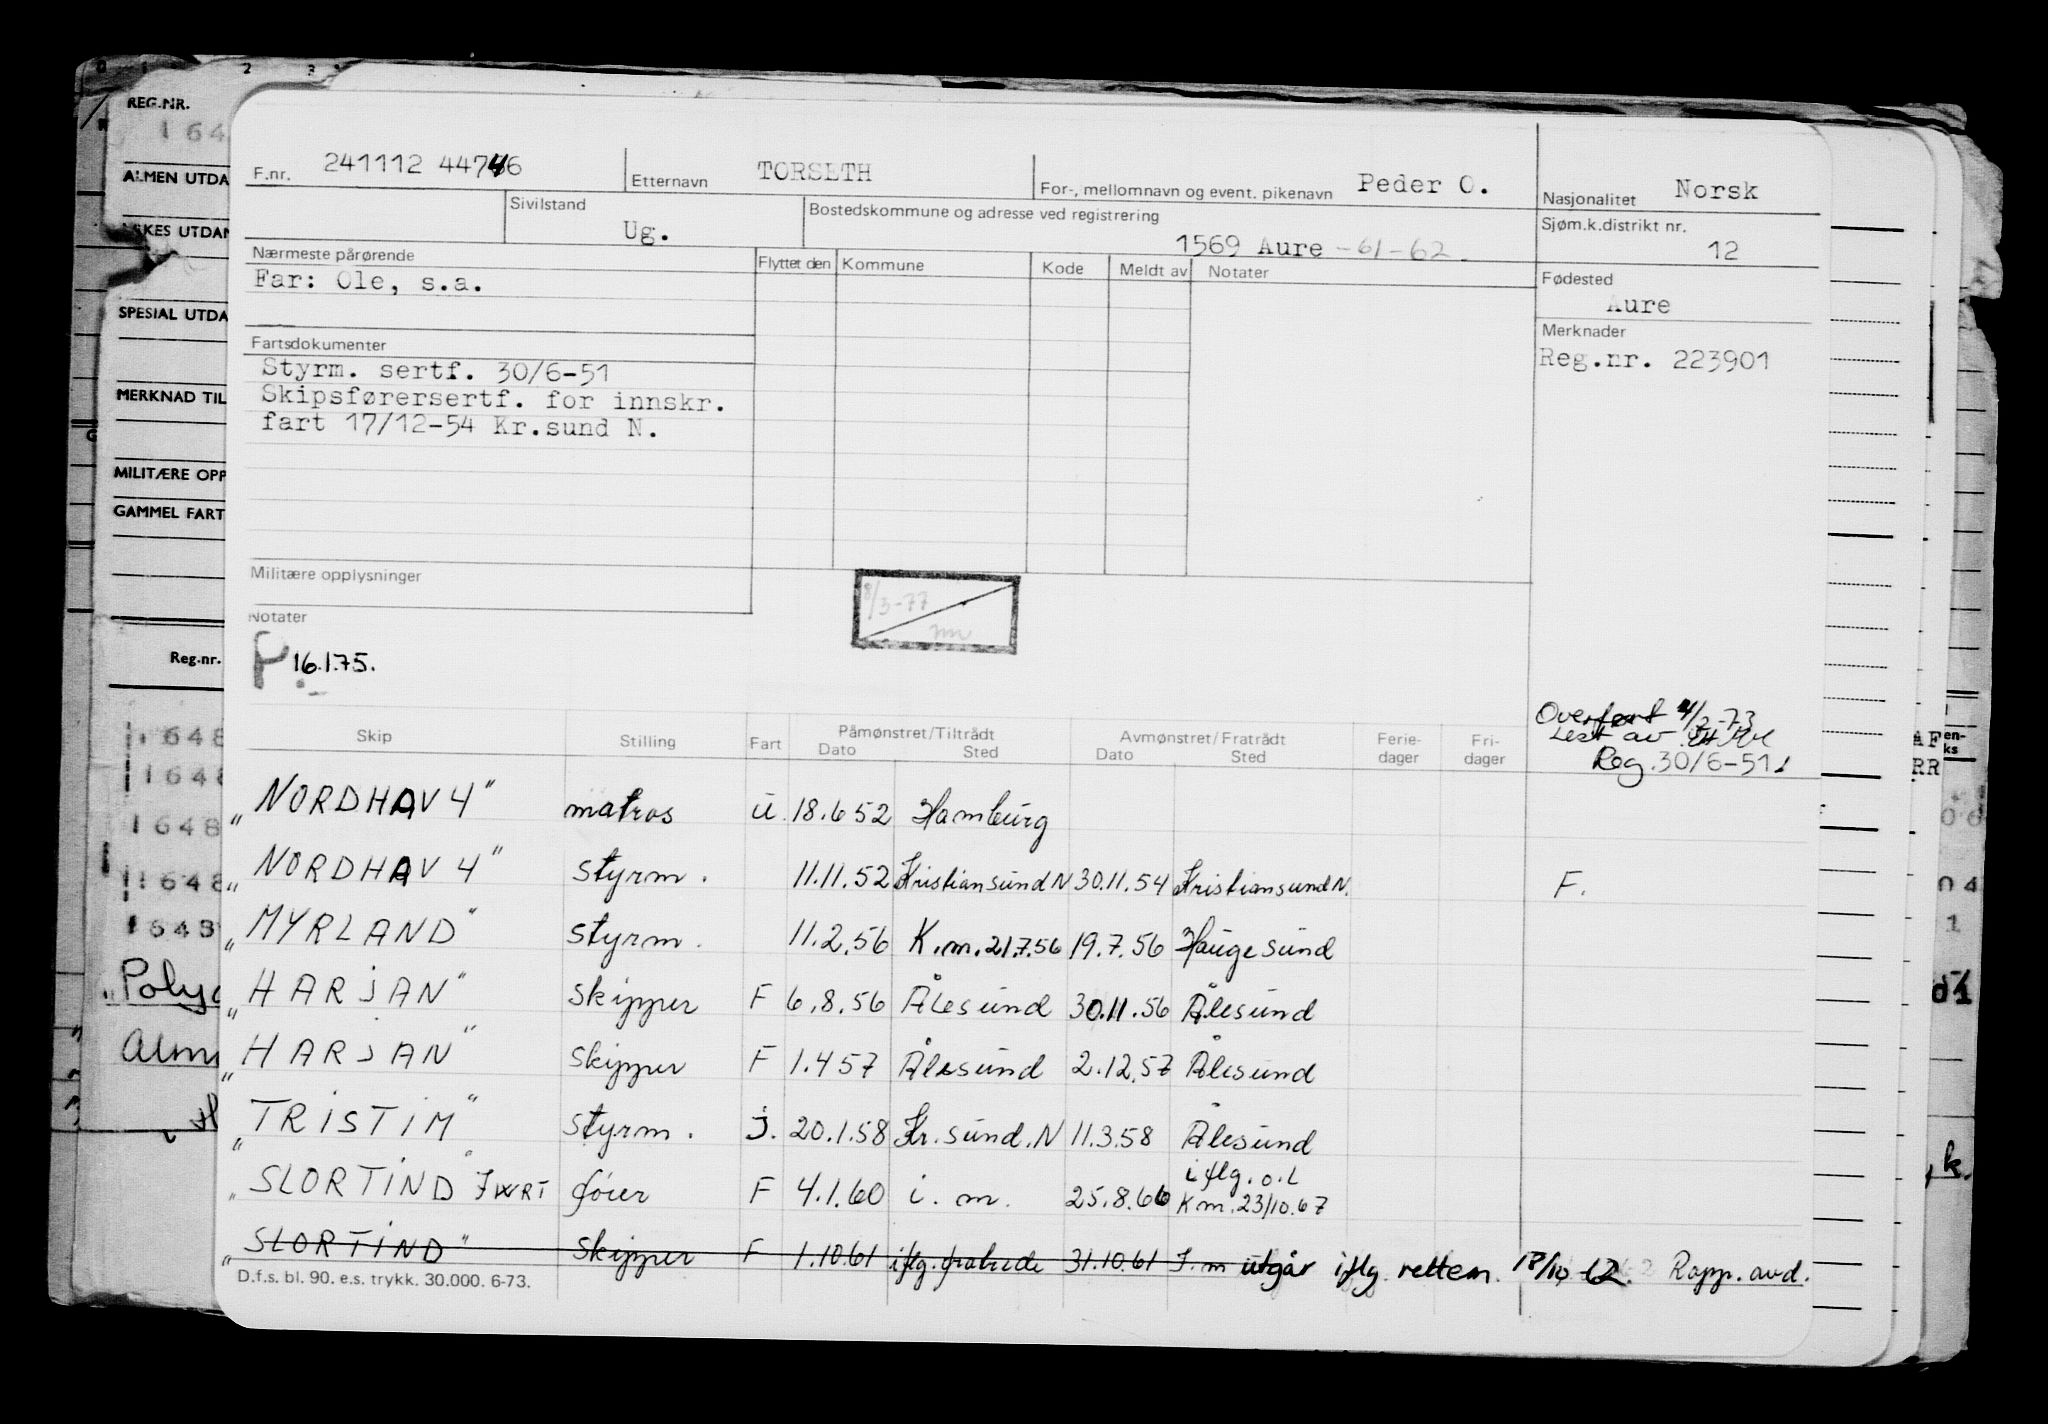 REG.NR.
164
ALMEN UTDA
SPESIAL UTDA
MERKNAD TIL
MILITÆRE OPP
GAMMEL FART
Reg.nr.
F.nr. 241112 44746
Etternavn TORSETH
For-, mellomnavn og event. pikenavn Peder O.
Nasjonalitet Norsk
Sivilstand Ug.
Bostedskommune og adresse ved registrering
1569 Aure -61-62.
Sjøm.k.distrikt nr.
12
Nærmeste pårørende
Far: Ole, s.a.
Flyttet den Kommune Kode Meldt av Notater
Fødested
Aure
Merknader
Reg.nr. 223901
Fartsdokumenter
Styrm. sertf. 30/6-51
Skipsførersertf. for innskr.
fart 17/12-54 Kr.sund N.
Militære opplysninger
8/3-77
Notater
P 16.1.75.
Skip Stilling Fart Påmønstret/Tiltrådt Dato Sted Avmønstret/Fratrådt Dato Sted Ferie-dager Fri-dager
Overført 4/2-73
Lest av
Reg. 30/6-51
"NORDHAV 4" matros U. 18.6 52 Hamburg
"NORDHAV 4" styrm. 11.11.52 Kristiansund N 30.11.54 Kristiansund N. F.
"MYRLAND" styrm. 11.2.56 K.m. 21.7.56 19.7.56 Haugesund
"HARJAN" skipper F 6.8.56 Ålesund 30.11.56 Ålesund
"HARJAN" skipper F 1.4 57 Ålesund 2.12.57 Ålesund
"TRISTIM" styrm. J. 20.1.58 Kr.sund.N 11.3.58 Ålesund
"SLORTIND" fører F 4.1.60 i.m. 25.8.66 iflg. o.l Km. 23/10.67
"SLORTIND" skipper F 1.10.61 iflg. fratrede 31.10.61 I.m utgår iflg. rettem. 18/10 62. Rapp. avd.
D.f.s. bl. 90. e.s. trykk. 30.000. 6-73.